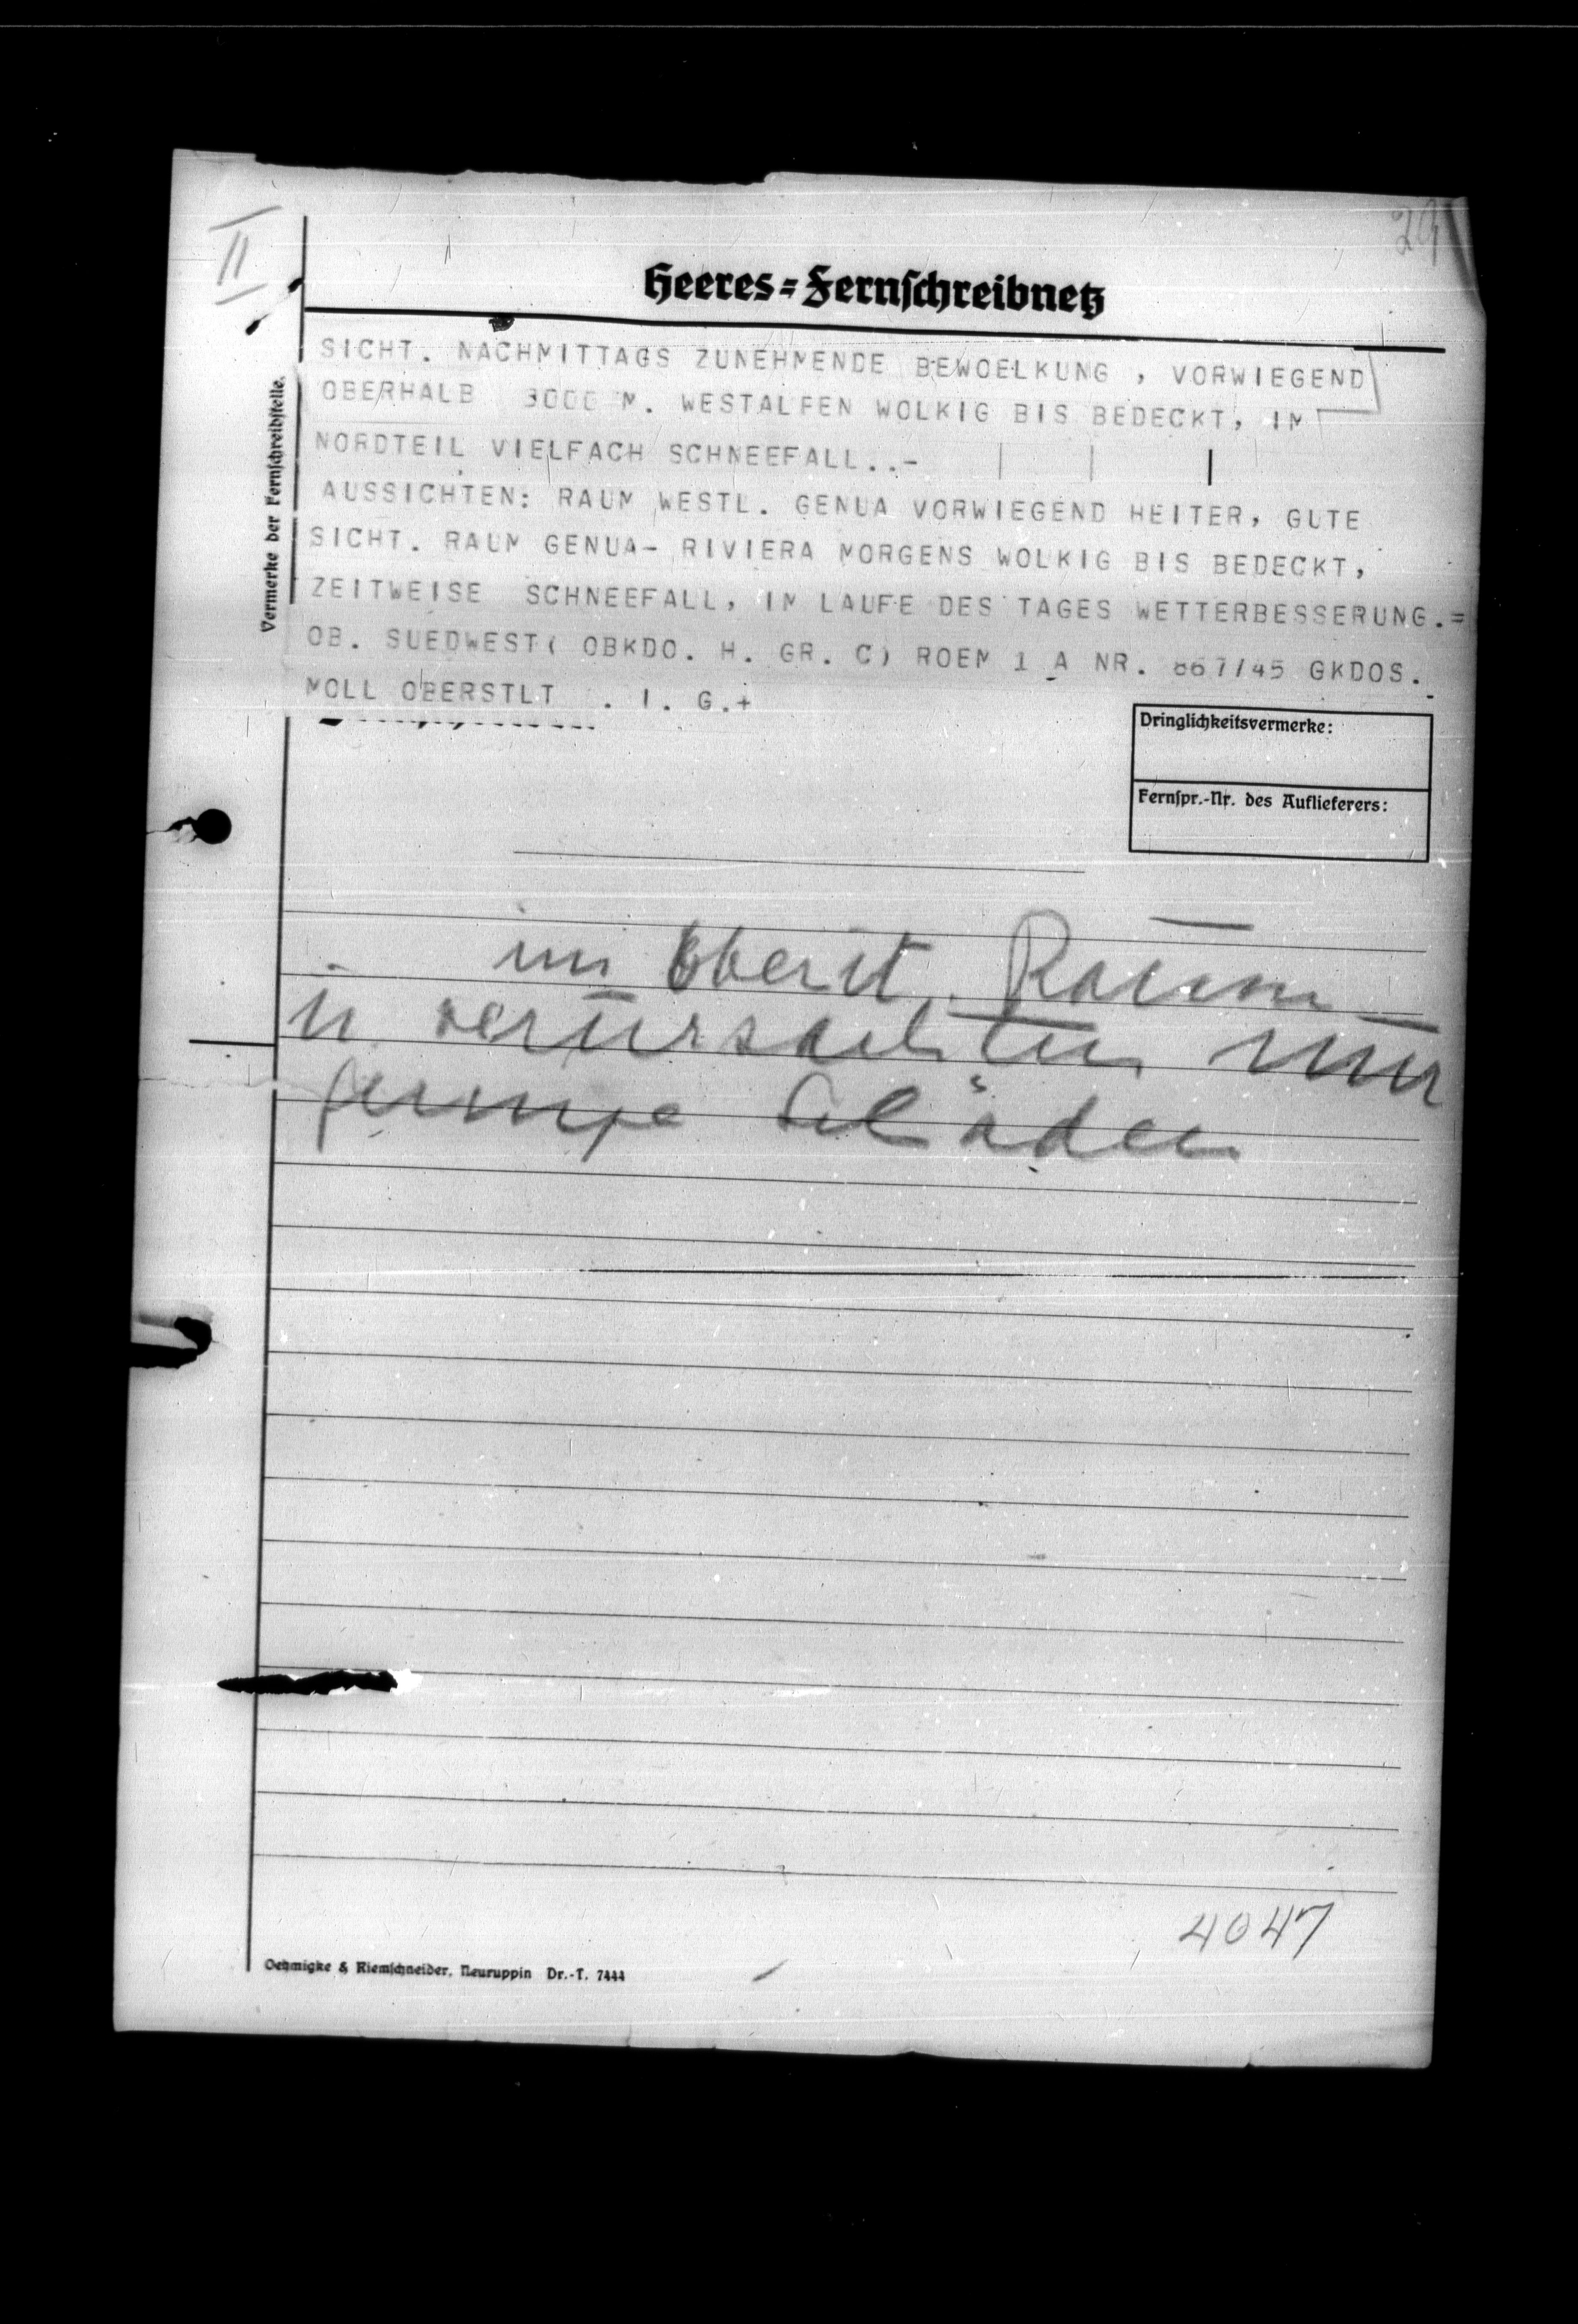 II
29
Heeres=Fernschreibnetz
Vermerke der Fernschreibstelle.
SICHT. NACHMITTAGS ZUNEHMENDE BEWOELKUNG , VORWIEGEND
OBERHALB 3000 M. WESTALPEN WOLKIG BIS BEDECKT, IM
NORDTEIL VIELFACH SCHNEEFALL..-
AUSSICHTEN: RAUM WESTL. GENUA VORWIEGEND HEITER, GUTE
SICHT. RAUM GENUA- RIVIERA MORGENS WOLKIG BIS BEDECKT,
ZEITWEISE SCHNEEFALL, IM LAUFE DES TAGES WETTERBESSERUNG.=
OB. SUEDWEST( OBKDO. H. GR. C) ROEM 1 A NR. 667/45 GKDOS.
MOLL OBERSTLT . I. G.+
Dringlichkeitsvermerke:
Fernspr.-Nr. des Auflieferers:
im Oberit. Raum
u. verursachten nur
geringe Schäden
4047
Oehmigke & Riemschneider, Neuruppin Dr.-T. 7444